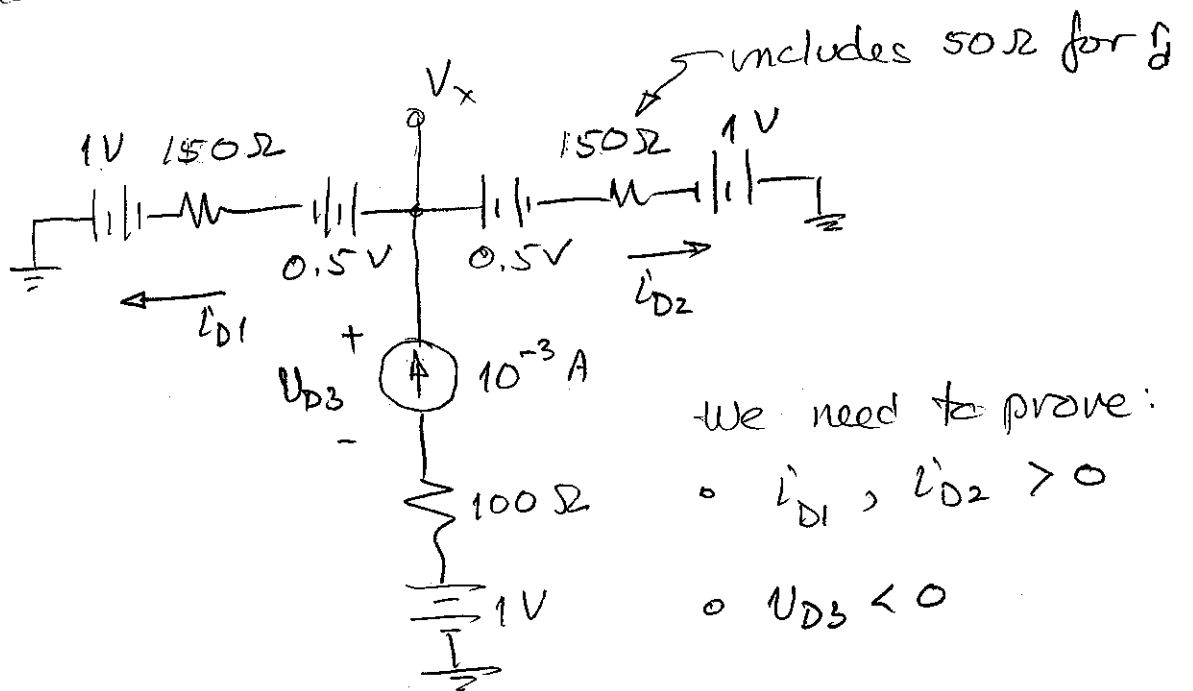 includes 50Ω for rd
Vx
1V 150Ω
150Ω 1V
0.5V 0.5V
iD1
iD2
+
VD3 10⁻³ A
-
100Ω
1V
We need to prove:
• iD1, iD2 > 0
• VD3 < 0